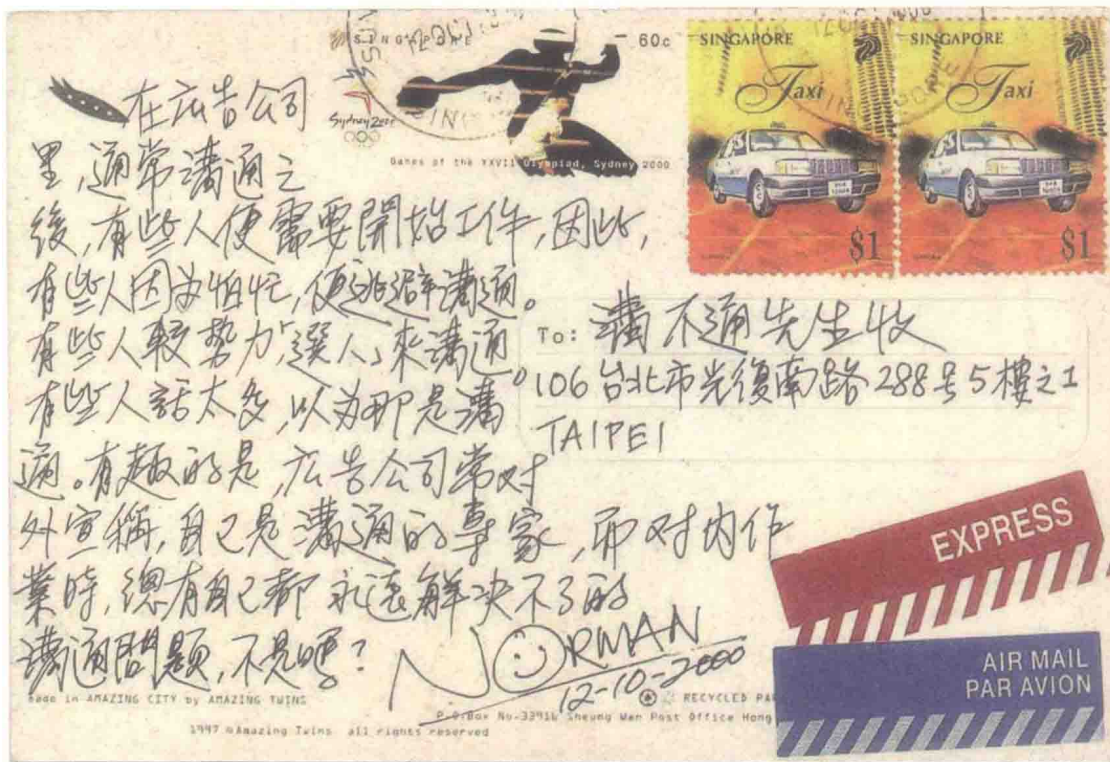 SINGAPORE
60c
Sydney 2000
Games of the XXVII Olympiad, Sydney 2000
SINGAPORE
Taxi
$1
SINGAPORE
Taxi
$1
在広告公司
里,通常溝通之
後,有些人便需要開始工作,因此,
有些人因为怕忙,便逃避溝通。
有些人較势力,「選人」來溝通。
有些人話太多,以为那是溝
通。有趣的是,広告公司常对
外宣稱,自己是溝通的專家,而对内作
業時,總有自己都永遠解决不了的
溝通問題,不是嗎?
NORMAN
12-10-2000
To: 溝不通先生收
106台北市光復南路288号5樓之1
TAIPEI
EXPRESS
AIR MAIL
PAR AVION
made in AMAZING CITY by AMAZING TWINS
RECYCLED
P.O.Box No.33916 Sheung Wan Post Office Hong
1997 ©Amazing Twins all rights reserved